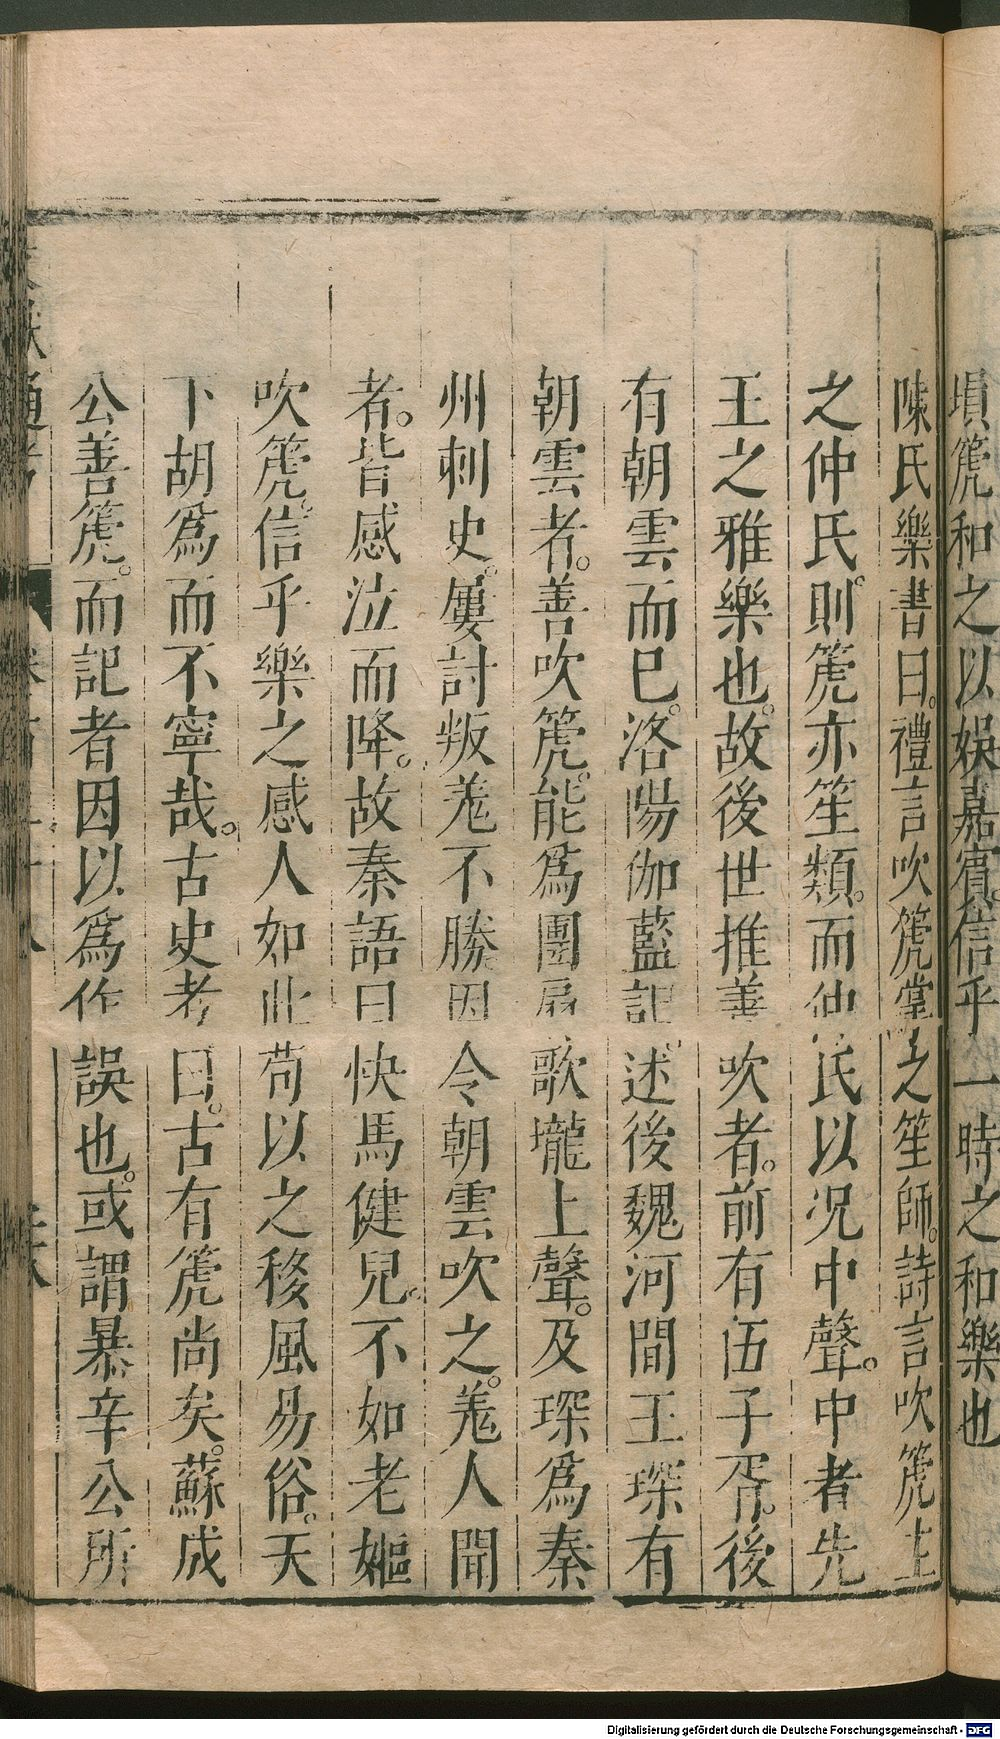 塤箎和之以娯嘉賔信乎一時之和樂也
陳氏樂書曰。禮言吹箎掌之笙師。詩言吹箎主
之仲氏。則箎亦笙類。而仲氏以况中聲。中者先
王之雅樂也。故後世推善吹者。前有伍子胥。後
有朝雲而巳。洛陽伽藍記述。後魏河間王琛有
朝雲者。善吹箎。能爲團扇歌壠上聲。及琛爲秦
州刺史。屢討叛羗不勝因令朝雲吹之。羗人聞
者。皆感泣而降。故秦語曰快馬健兒。不如老嫗
吹箎。信乎樂之感人如此苟以之移風易俗。天
下胡爲而不寧哉。古史考曰。古有箎尚矣。蘇成
公善箎。而記者因以爲作誤也。或謂暴辛公所
通考
Digitalisierung gefördert durch die Deutsche Forschungsgemeinschaft - DFG